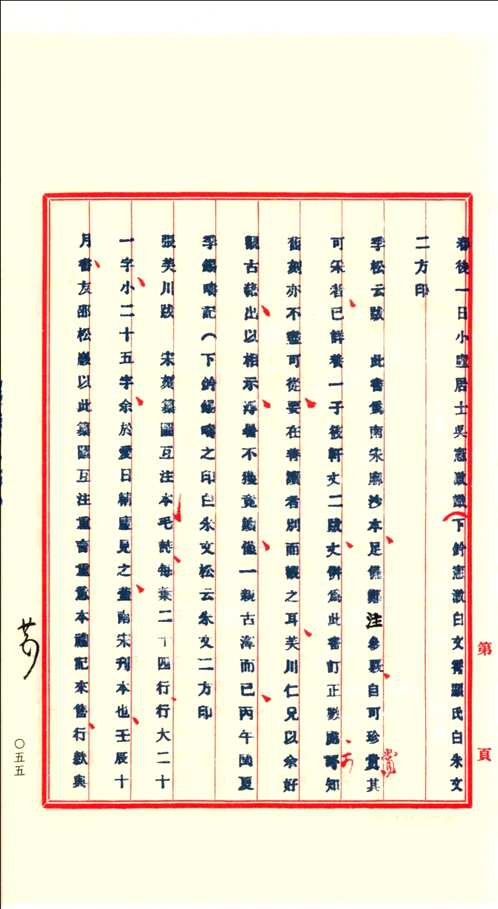 春後一日小壺居士吳憲澂識下鈐憲澂白文舊顧氏白朱文
二方印
季松云跋 此書爲南宋麻沙本足備鄭注參覈自可珍賞其
可采者已詳卷一子後軒丈二跋丈併爲此書訂正數處可知
舊刻亦不盡可從要在善讀者別而擇之耳美川仁兄以余好
觀古籍出以相示溽暑不獲竟讀僅一親古澤而已丙午閏夏
季錫疇記(下鈐錫疇之印白朱文松云朱文二方印
張美川跋 宋刻纂圖互注本毛詩每葉二十四行行大二十
一字小二十五字余於愛日精廬見之蓋南宋刊本也壬辰十
月書友邵松巖以此纂圖互注重言重意本禮記來售行款與
第 頁
〇五五